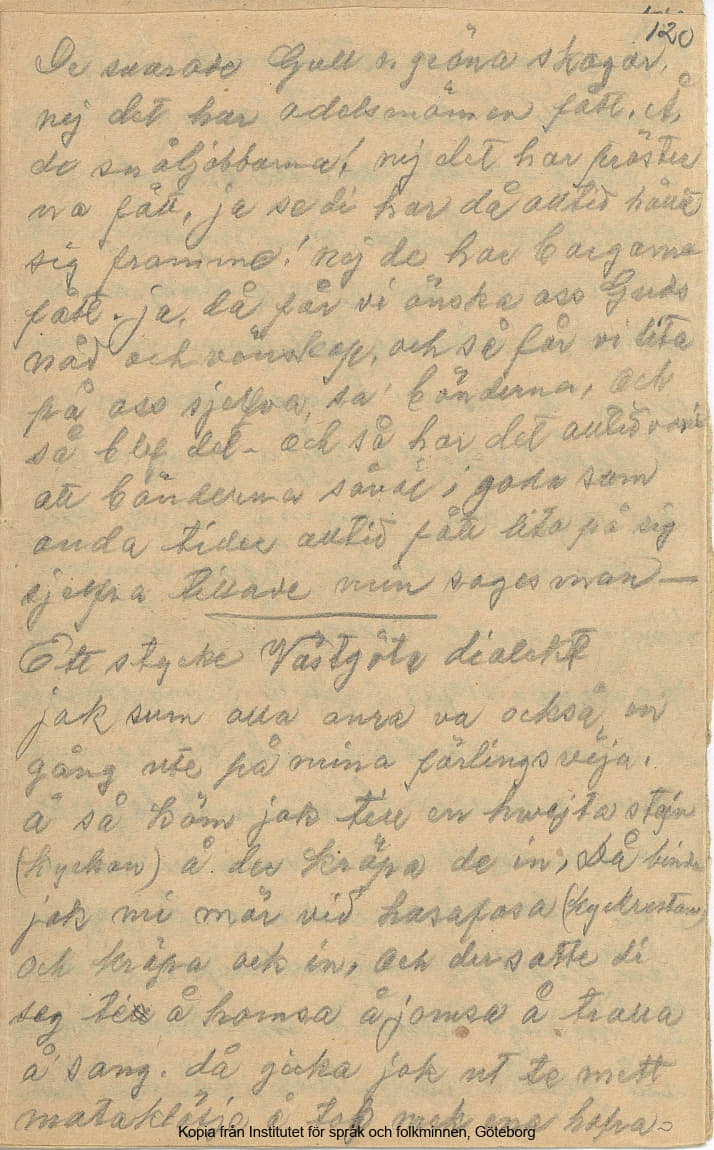 120
De svarade Gull o. gröna skogar,
nej det har adelsmännen fått. Å,
de småljobbarna! nej det har präster
na fått, ja se di har då alltid hållit
sig framme! nej de har borgarna
fått. ja, då får vi önska oss Guds
nåd och vänskap, och så får vi lita
på oss sjelfva, sa' bönderna, och
så blef det - och så har det alltid varit
att bönderna såväl i goda som
onda tider alltid fått lita på sig
sjelfva tillade min sagesman —
Ett stycke Västgöta dialekt
jak sum alla anra va också en
gång ute på mina färlings väja.
å så köm jak till en hwejta stejn
(kyckan) å der kröpa de in, Då binde
jak mi mär vid hasafasa (kyckrestan)
och kröpa ock in, och der satte di
seg till å homsa å jomsa å tralla
å sang. då gicka jak ut te mett
å tok mek ena hopra-
Kopia från Institutet för språk och folkminnen, Göteborg